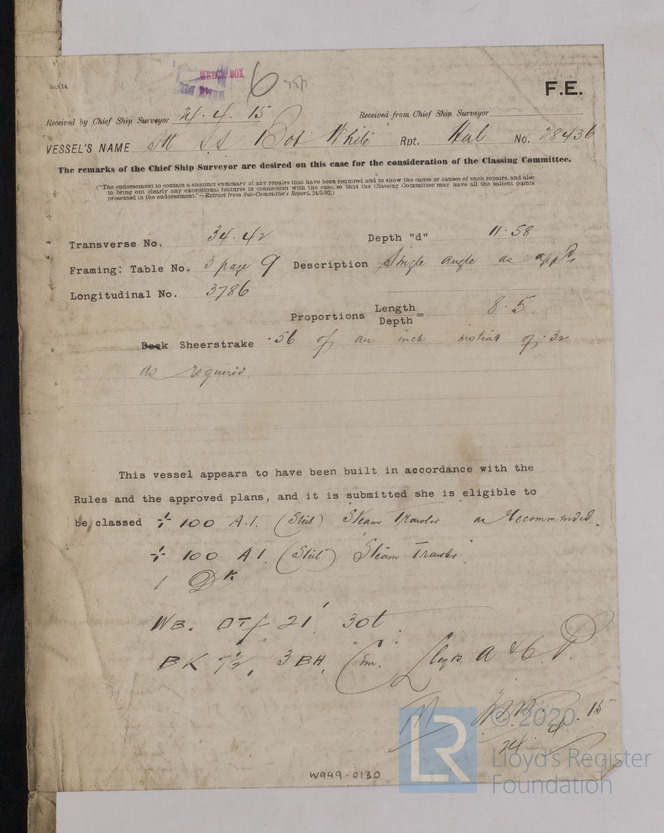 WRECK BOX
6
5c.8.14.
F.E.
Received by Chief Ship Surveyor 24. 4. 15 Received from Chief Ship Surveyor
VESSEL'S NAME St S.S Bob White Rpt. Hul No. 28436
The remarks of the Chief Ship Surveyor are desired on this case for the consideration of the Classing Committee.
("The endorsement to contain a succinct summary of any repairs that have been required and to show the cause or causes of such repairs, and also
to bring out clearly any exceptional features in connection with the case, so that the Classing Committee may have all the salient points
presented in the endorsement."—Extract from Sub-Committee's Report, 24/3/92.)
Transverse No. 34.42 Depth "d" 11.58
Framing: Table No. 3 page 9 Description Single angle as appd.
Longitudinal No. 3786
Proportions Length
Depth = 8.5
Sheerstrake .56 of an inch instead of .32
as required.
This vessel appears to have been built in accordance with the
Rules and the approved plans, and it is submitted she is eligible to
be classed + 100 A.1. (Steel) Steam Trawler as Recommended.
+ 100 A1. (Steel) Steam Trawler
1 Dk
WB. 21' 30t
BK 7½, 3BH, Cem. Lloyds A & C P.
24. 4. 15
© 2020
LR
Lloyd's Register
Foundation
W949-0130